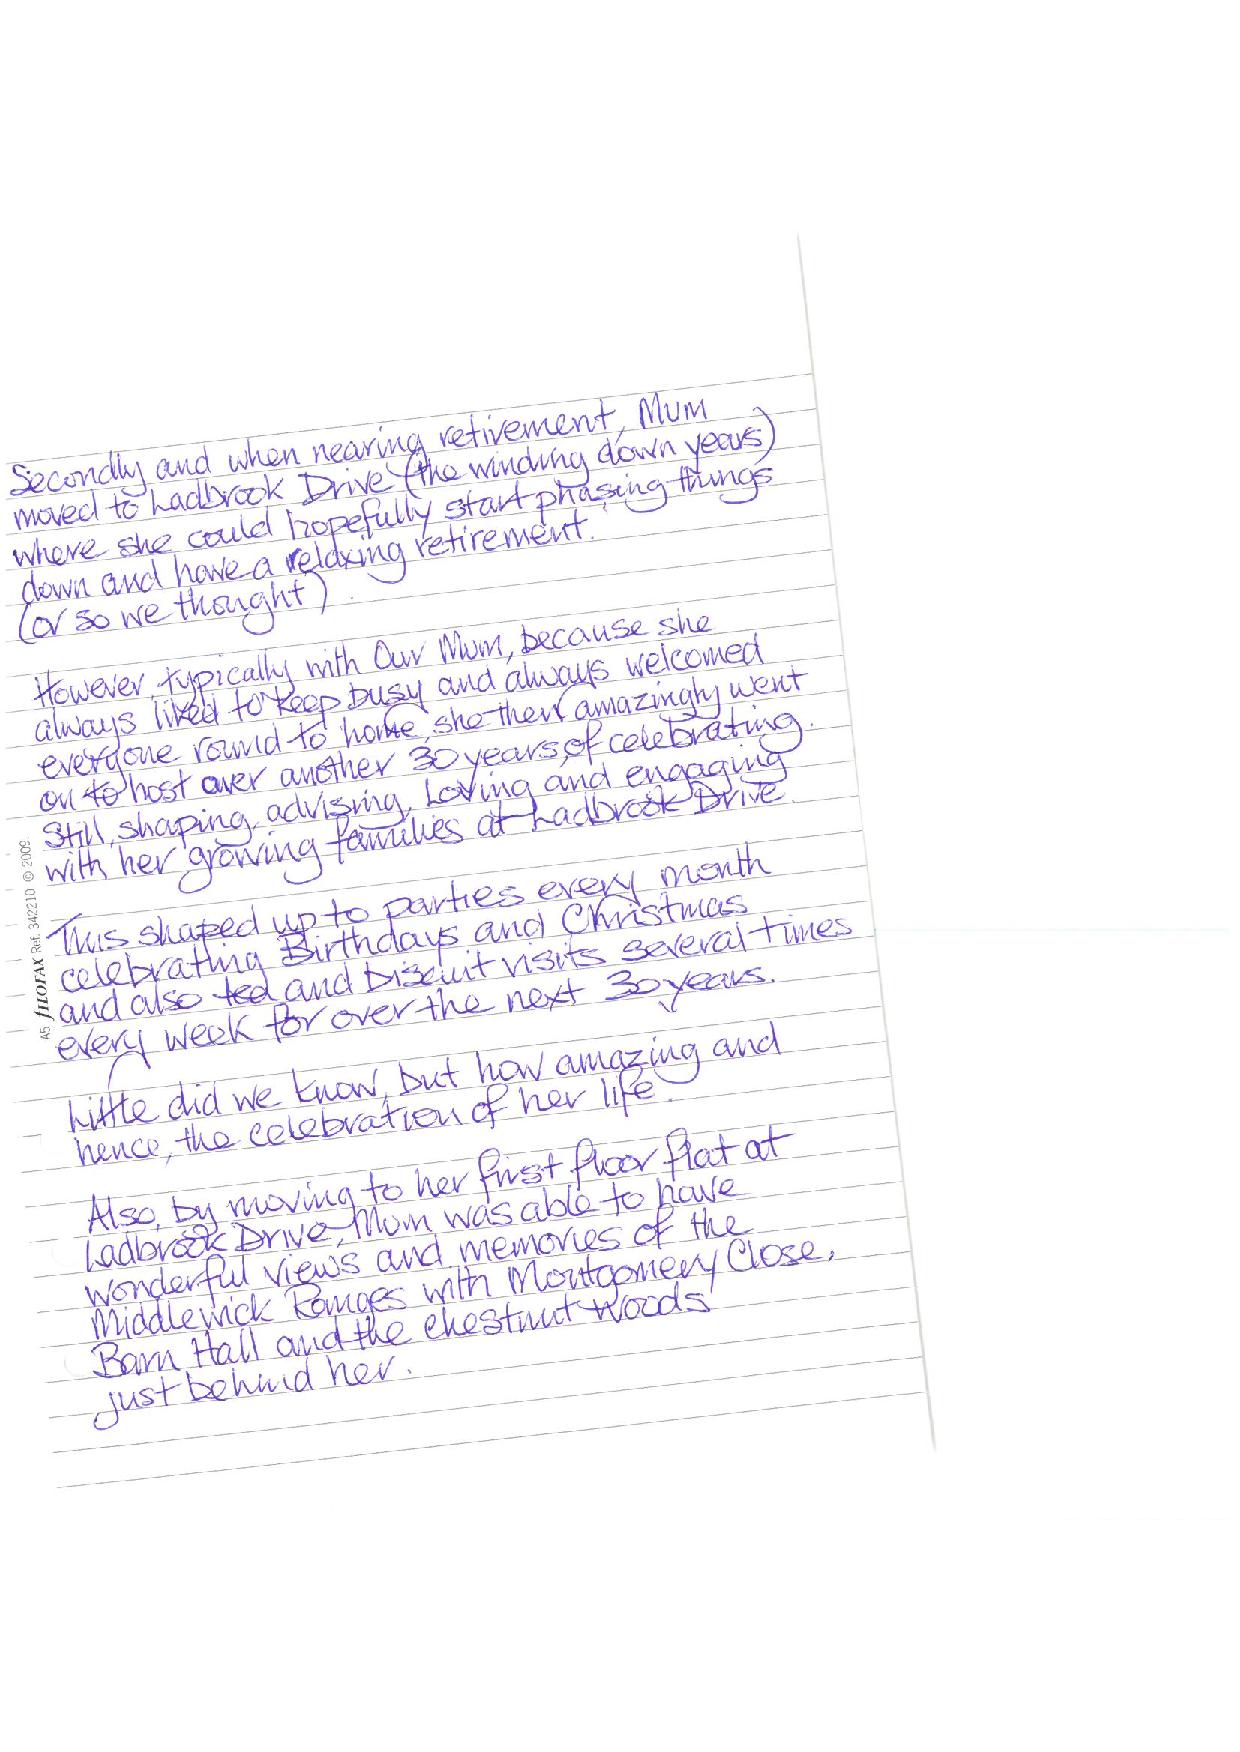 Secondly and when nearing retirement, Mum
moved to Ladbrook Drive (the winding down years)
where she could hopefully start phasing things
down and have a relaxing retirement.
(or so we thought).
However, typically with Our Mum, because she
always liked to keep busy and always welcomed
everyone round to home, she then amazingly went
on to host over another 30 years, of celebrating.
Still, shaping, advising, Loving and engaging
with her growing families at Ladbrook Drive.
This shaped up to parties every month
celebrating Birthdays and Christmas
and also ted and Biscuit visits several times
every week for over the next 30 years.
Little did we know, but how amazing and
hence, the celebration of her life.
Also, by moving to her first floor flat at
Ladbrook Drive, Mum was able to have
wonderful views and memories of the
Middlewick Ranges with Montgomery Close,
Barn Hall and the chestnut woods
just behind her.
A5 filofax Ref. 342210 © 2009